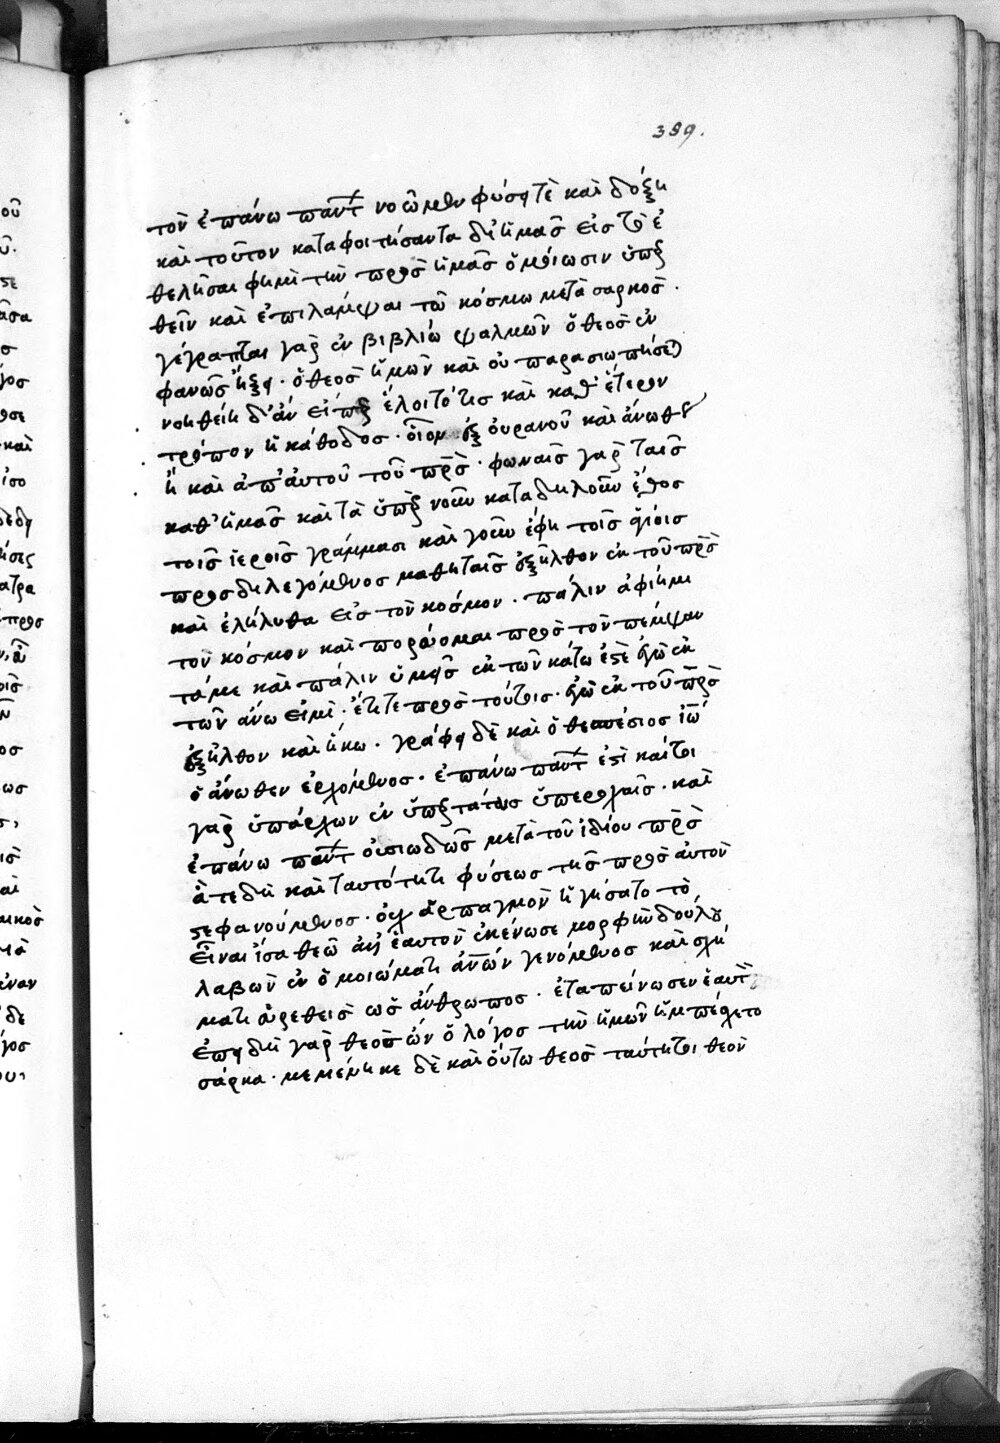 389.
τὸν ἐπάνω παντ νοῶμεν φύσει τὲ καὶ δόξη
καὶ τοῦτον καταφοιτήσαντα δι ἡμᾶς εἰς τὸ ἐ
θελῆσαι φημὶ τὴν πρὸς ἡμᾶς ὁμοίωσιν ὑπελ
θεῖν καὶ ἐπιλάμψαι τῶ κόσμω μετὰ σαρκὸς .
γέγραπται γὰρ ἐν βιβλίω ψαλμῶν ὁ θεὸς ἐμ
φανῶς ἥξει . ὁ θεὸς ἡμῶν καὶ οὐ παρασιωπήσεται
νοηθείη δ' ἂν εἴπερ ἕλοιτό τις καὶ καθ' ἕτερον
τρόπον ἡ κάθοδος . οἷον ἐξ οὐρανοῦ καὶ ἄνωθεν
ἢ καὶ ἀπ' αὐτοῦ τοῦ πρς . φωναῖς γὰρ ταῖς
καθ' ἡμᾶς καὶ τὰ ὑπὲρ νοῦν καταδηλοῦν ἔθος
τοῖς ἱεροῖς γράμμασι καὶ γοῦν ἔφη τοῖς ἁγίοις
προσδιαλεγόμενος μαθηταῖς ἐξῆλθον ἐκ τοῦ πρς
καὶ ἐλήλυθα εἰς τὸν κόσμον . πάλιν ἀφίημι
τὸν κόσμον καὶ πορεύομαι πρὸς τὸν πέμψαν
τά με καὶ πάλιν ὑμεῖς ἐκ τῶν κάτω ἐστὲ ἐγὼ ἐκ
τῶν ἄνω εἰμὶ . ἔτι τε πρὸς τούτοις . ἐγὼ ἐκ τοῦ πρς
ἐξῆλθον καὶ ἥκω . γράφει δὲ καὶ ὁ θεσπέσιος ἰω
ὁ ἄνωθεν ἐρχόμενος . ἐπάνω παντ ἐστὶ καίτοι
γὰρ ὑπάρχων ἐν ὑπερτάτοις ὑπεροχαῖς . καὶ
ἐπάνω παντ οὐσιωδῶς μετὰ τοῦ ἰδίου πρς
ἅτε δὴ καὶ ταυτότητι φύσεως τῆς πρὸς αὐτὸν
στεφανούμενος . οὐχ ἁρπαγμὸν ἡγήσατο τὸ
εἶναι ἴσα θεῶ ἀλλ' ἑαυτὸν ἐκένωσε μορφὴν δούλου
λαβὼν ἐν ὁμοιώματι ἀνων γενόμενος καὶ σχή
ματι εὑρεθεὶς ὡς ἄνθρωπος . ἐταπείνωσεν ἑαυτ
ἐπειδὴ γὰρ θεὸς ὢν ὁ λόγος τὴν ἡμῶν ἠμπέσχετο
σάρκα . μεμένηκε δὲ καὶ οὕτω θεὸς ταύτητοι θεὸν